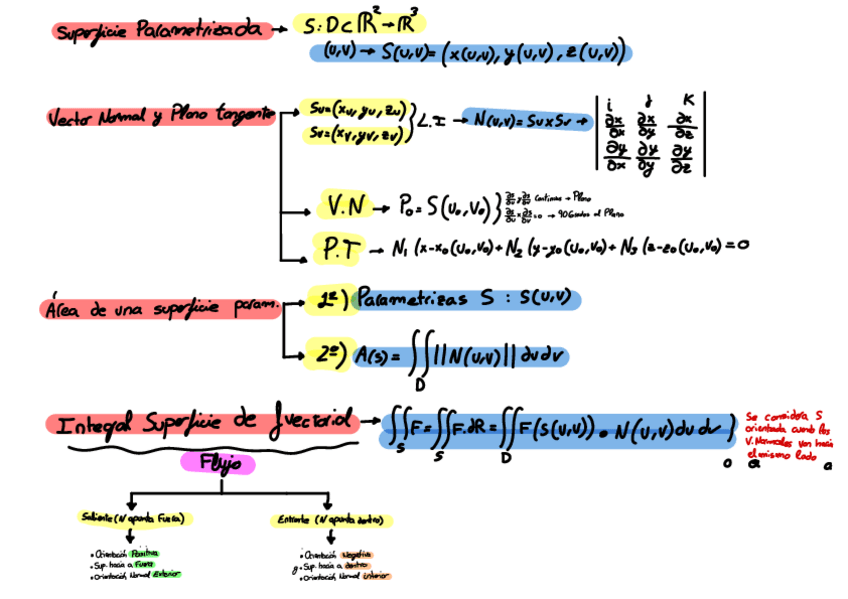 Superficie Parametrizada → S: D ⊂ ℝ² → ℝ³
(u,v) → S(u,v) = (x(u,v), y(u,v), z(u,v))
Vector Normal y Plano tangente
Su=(xu, yu, zu)
Sv=(xv, yv, zv) } L.I → N(u,v) = Su x Sv →
i j K
∂x/∂x ∂x/∂y ∂x/∂z
∂y/∂x ∂y/∂y ∂y/∂z
V.N → P₀ = S(u₀, v₀) } continuas → Plano
→ 90 Grados al Plano
P.T → N₁(x-x₀(u₀,v₀) + N₂(y-y₀(u₀,v₀) + N₃(z-z₀(u₀,v₀) = 0
Área de una superficie param.
1º) Parametrizas S : S(u,v)
2º) A(s) = ∬ ||N(u,v)|| dudv
D
Integral Superficie de f vectorial → ∬F = ∬F.dR = ∬F(S(u,v)) • N(u,v) du dv }
S S D
Se considera S
orientada cuando los
V.Normales van hacia
el mismo lado
Flujo
Saliente (N apunta Fuera)
Entrante (N apunta dentro)
• Orientación Positiva
• Sup. hacia a Fuera
• Orientación Normal Exterior
• Orientación Negativa
• Sup. hacia a dentro
• Orientación Normal interior